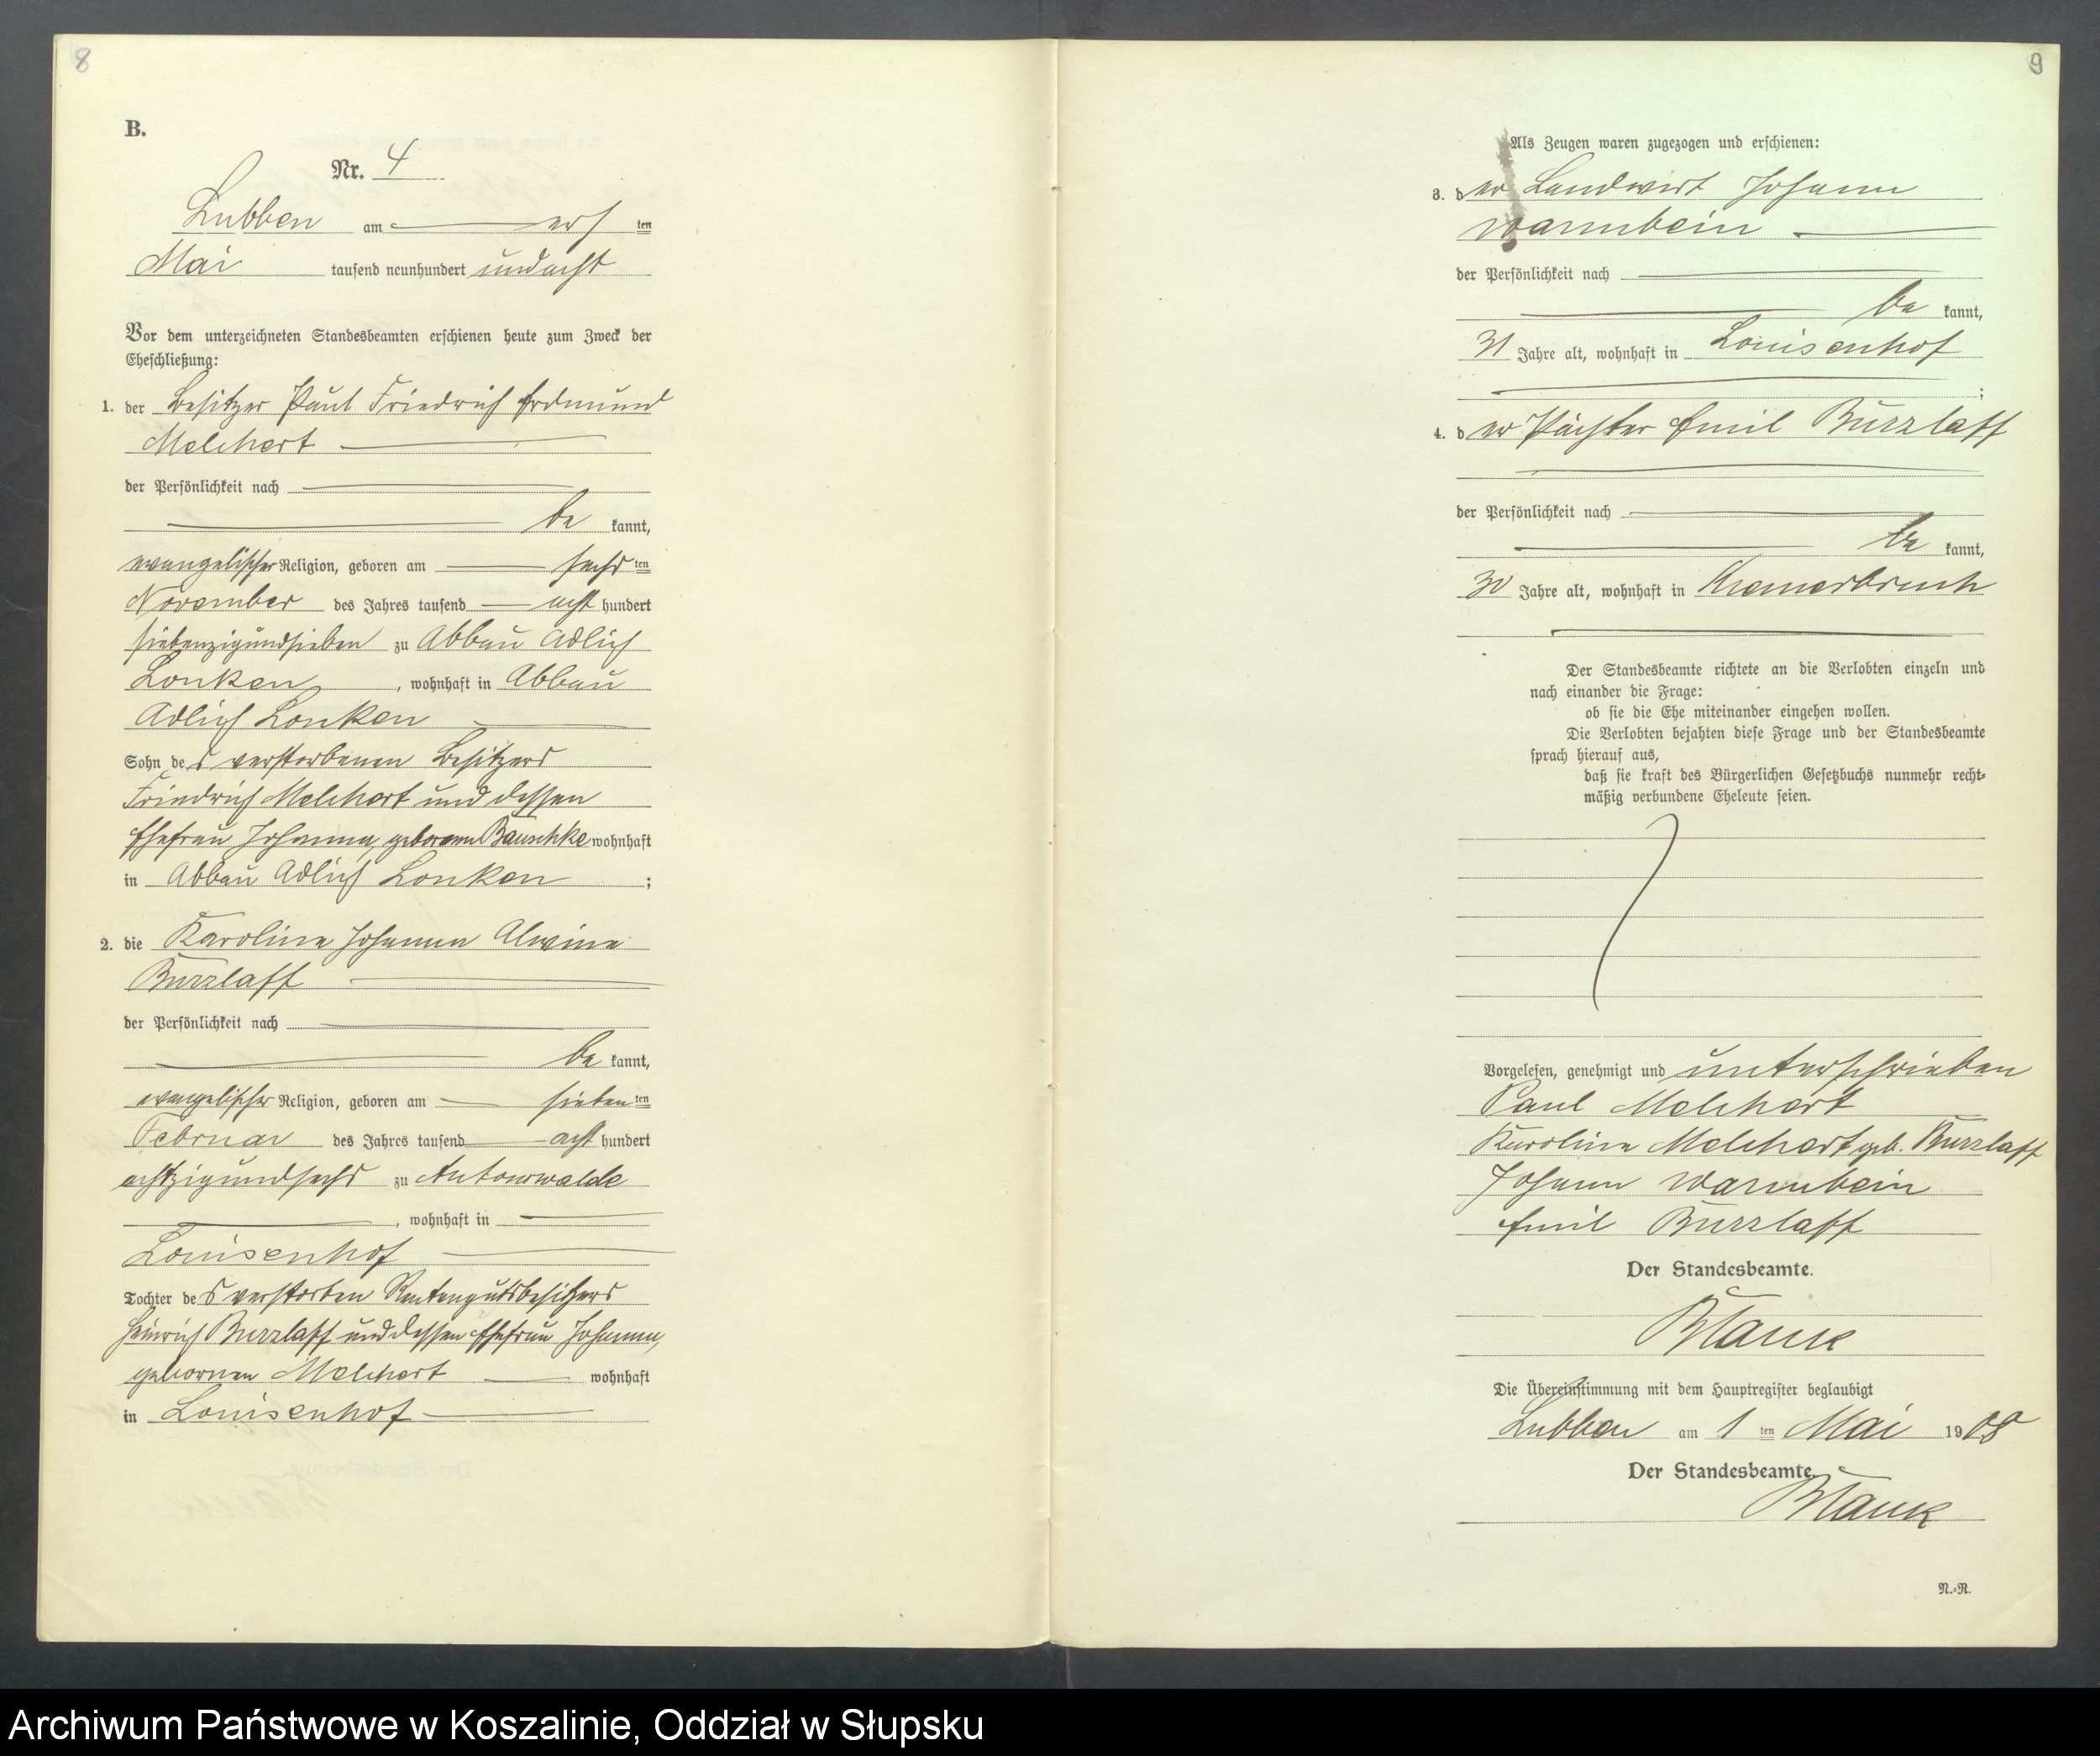 8
B.
Nr. 4
Lubben am ersten
Mai tausend neunhundert undacht
Vor dem unterzeichneten Standesbeamten erschienen heute zum Zweck der
Eheschließung:
1. der Besitzer Paul Friedrich Erdmund
Melchert
der Persönlichkeit nach
be kannt,
evangelischer Religion, geboren am sechsten
November des Jahres tausend acht hundert
siebenzigundsieben zu Abbau Adlich
Lonken, wohnhaft in Abbau
Adlich Lonken
Sohn des verstorbenen Besitzers
Friedrich Melchert und dessen
Ehefrau Johanna, geborenen Bauschke wohnhaft
in Abbau Adlich Lonken ;
2. die Karoline Johanna Alwine
Burzlaff
der Persönlichkeit nach
be kannt,
evangelischer Religion, geboren am siebenten
Februar des Jahres tausend acht hundert
achtzigundsechs zu Antonswalde
, wohnhaft in
Louisenhof
Tochter des verstorben Rentengutsbesitzers
Heinrich Burzlaff und dessen Ehefrau Johanna,
geborenen Melchert wohnhaft
in Louisenhof
9
Als Zeugen waren zugezogen und erschienen:
3. der Landwirt Johann
Warmbein
der Persönlichkeit nach
be kannt,
31 Jahre alt, wohnhaft in Louisenhof
;
4. der Pächter Emil Burzlaff
der Persönlichkeit nach
be kannt,
30 Jahre alt, wohnhaft in Kremerbruch
Der Standesbeamte richtete an die Verlobten einzeln und
nach einander die Frage:
ob sie die Ehe miteinander eingehen wollen.
Die Verlobten bejahten diese Frage und der Standesbeamte
sprach hierauf aus,
daß sie kraft des Bürgerlichen Gesetzbuchs nunmehr recht-
mäßig verbundene Eheleute seien.
Vorgelesen, genehmigt und unterschrieben
Paul Melchert
Karoline Melchert geb. Burzlaff
Johann Warmbein
Emil Burzlaff
Der Standesbeamte.
Blank
Die Übereinstimmung mit dem Hauptregister beglaubigt
Lubben am 1 ten Mai 1908
Der Standesbeamte.
Blank
N.-R.
Archiwum Państwowe w Koszalinie, Oddział w Słupsku